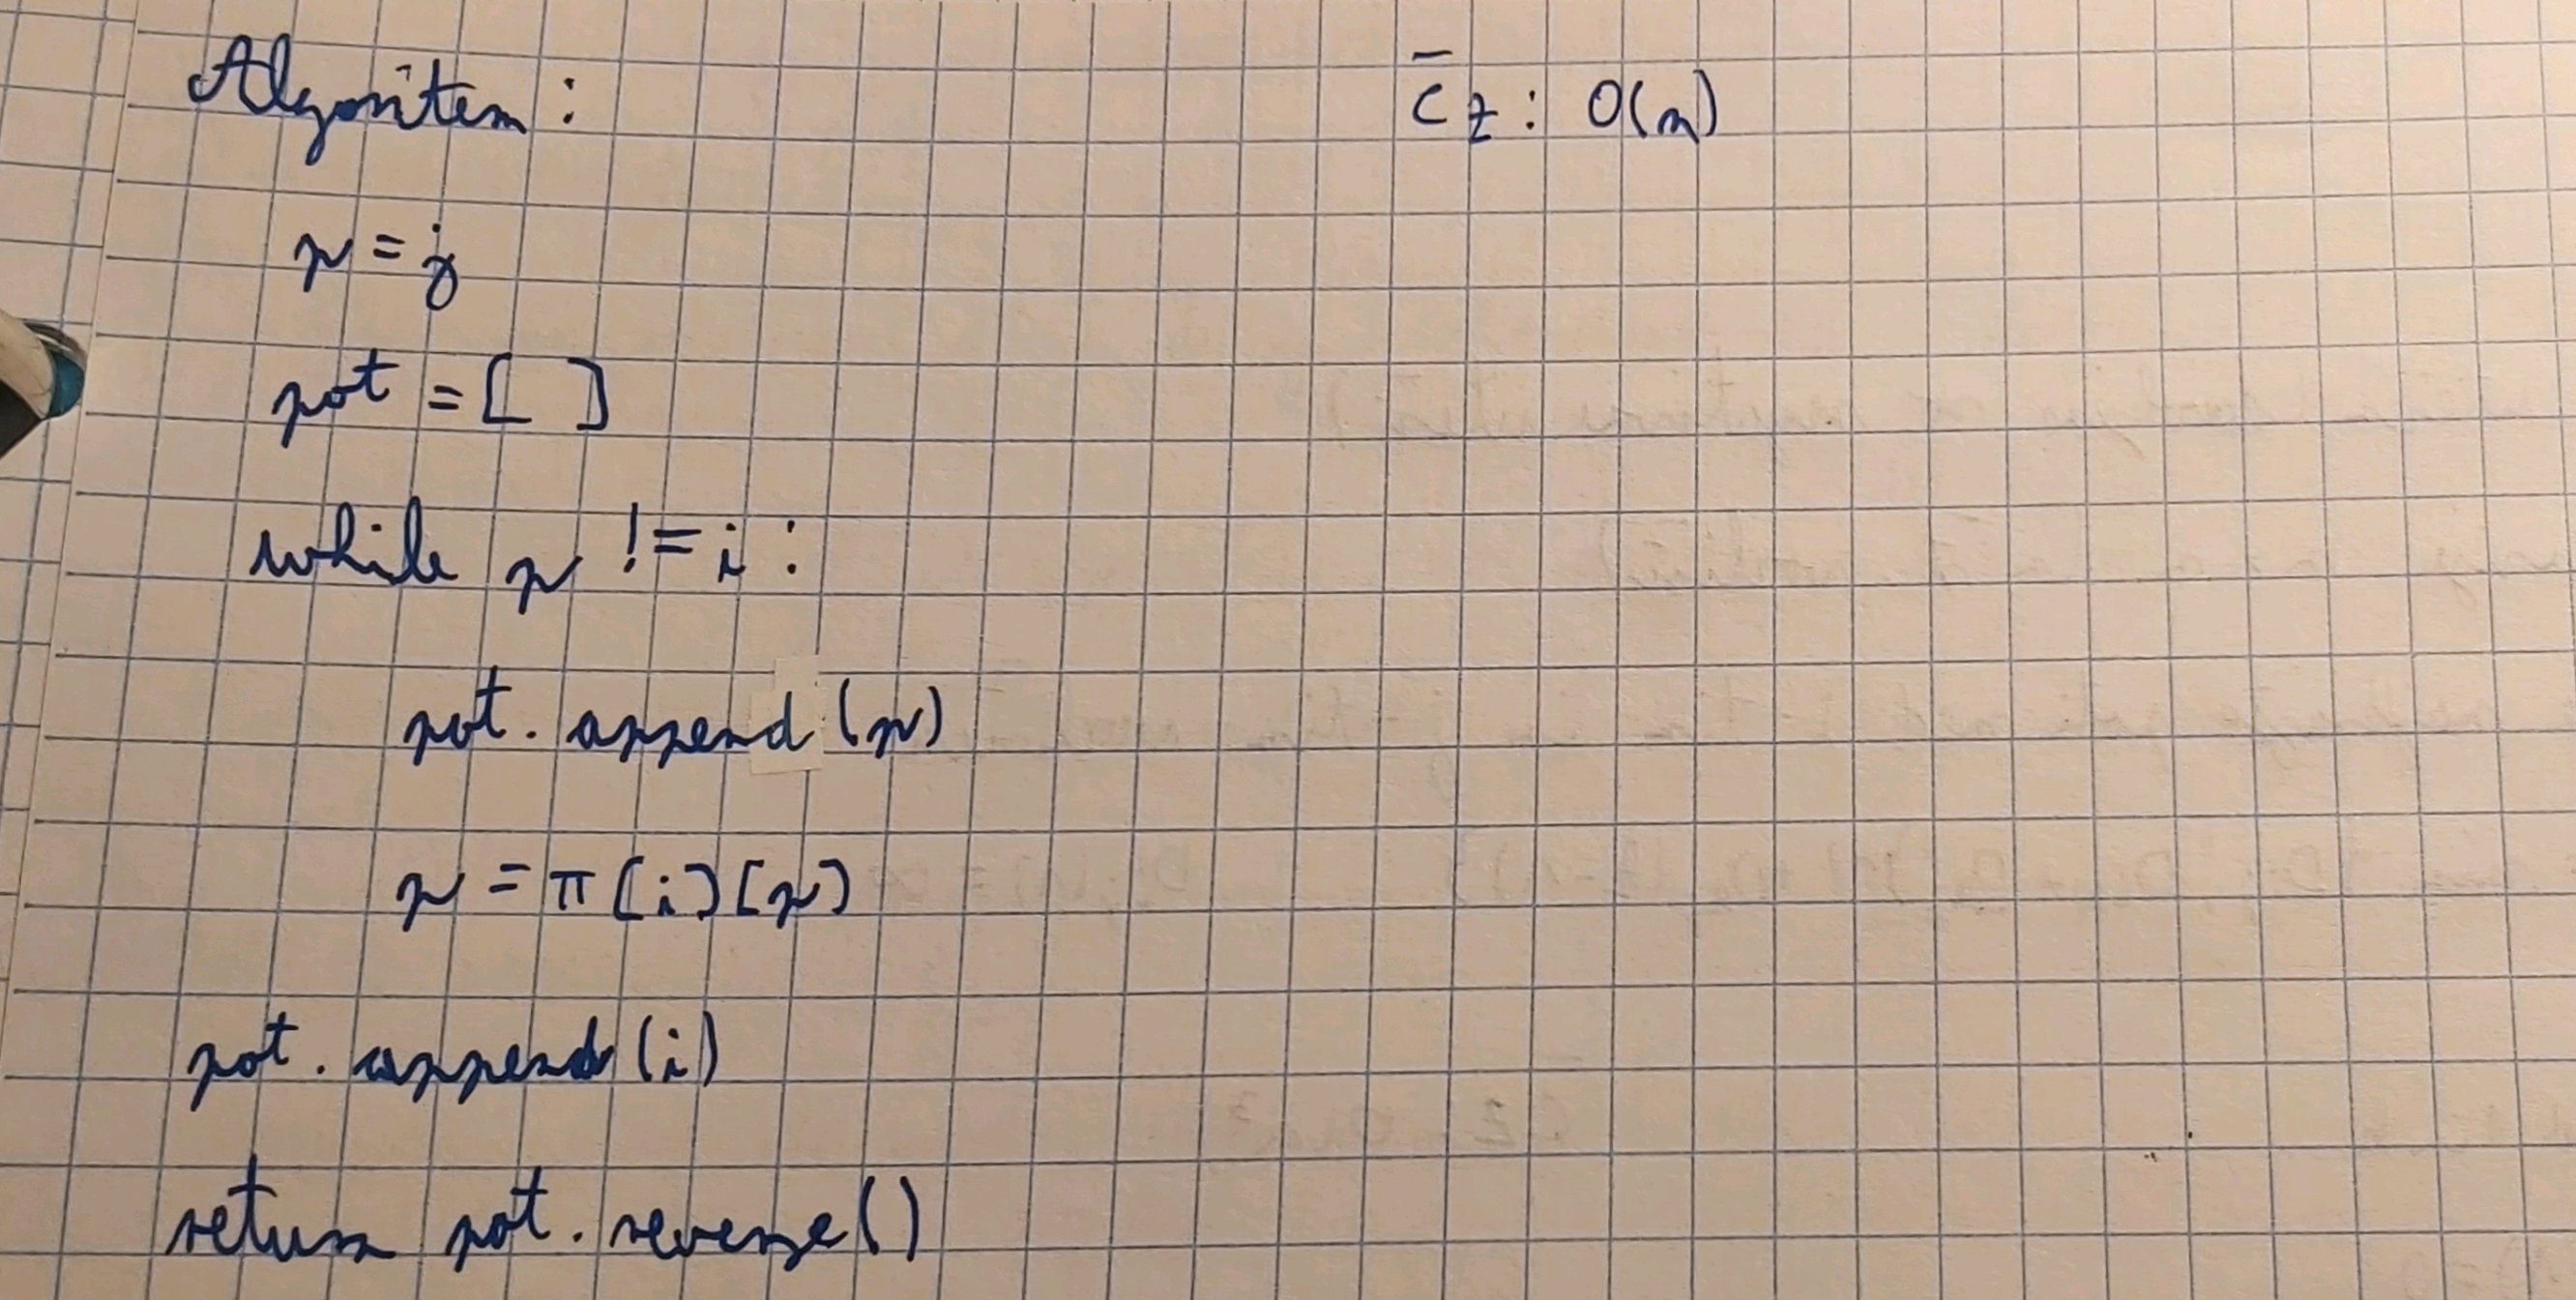 Algoritem :
ČZ : O(n)
p = j
pot = [ ]
while p != i :
pot. append (p)
p = π [i] [p]
pot. append (i)
return pot. reverse()